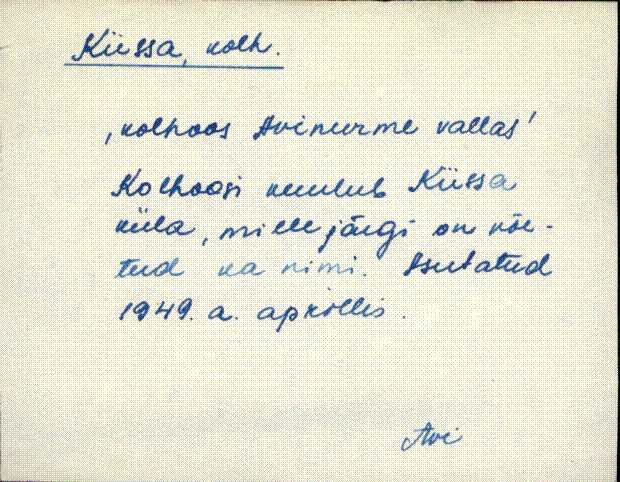 Kiissa, kolh.
‚kolhoos Avinurme vallas’
Kolhoosi kuulub Kiissa
küla, mille järgi on võe-
tud ka nimi. Asutatud
1949. a. aprillis.
Avi